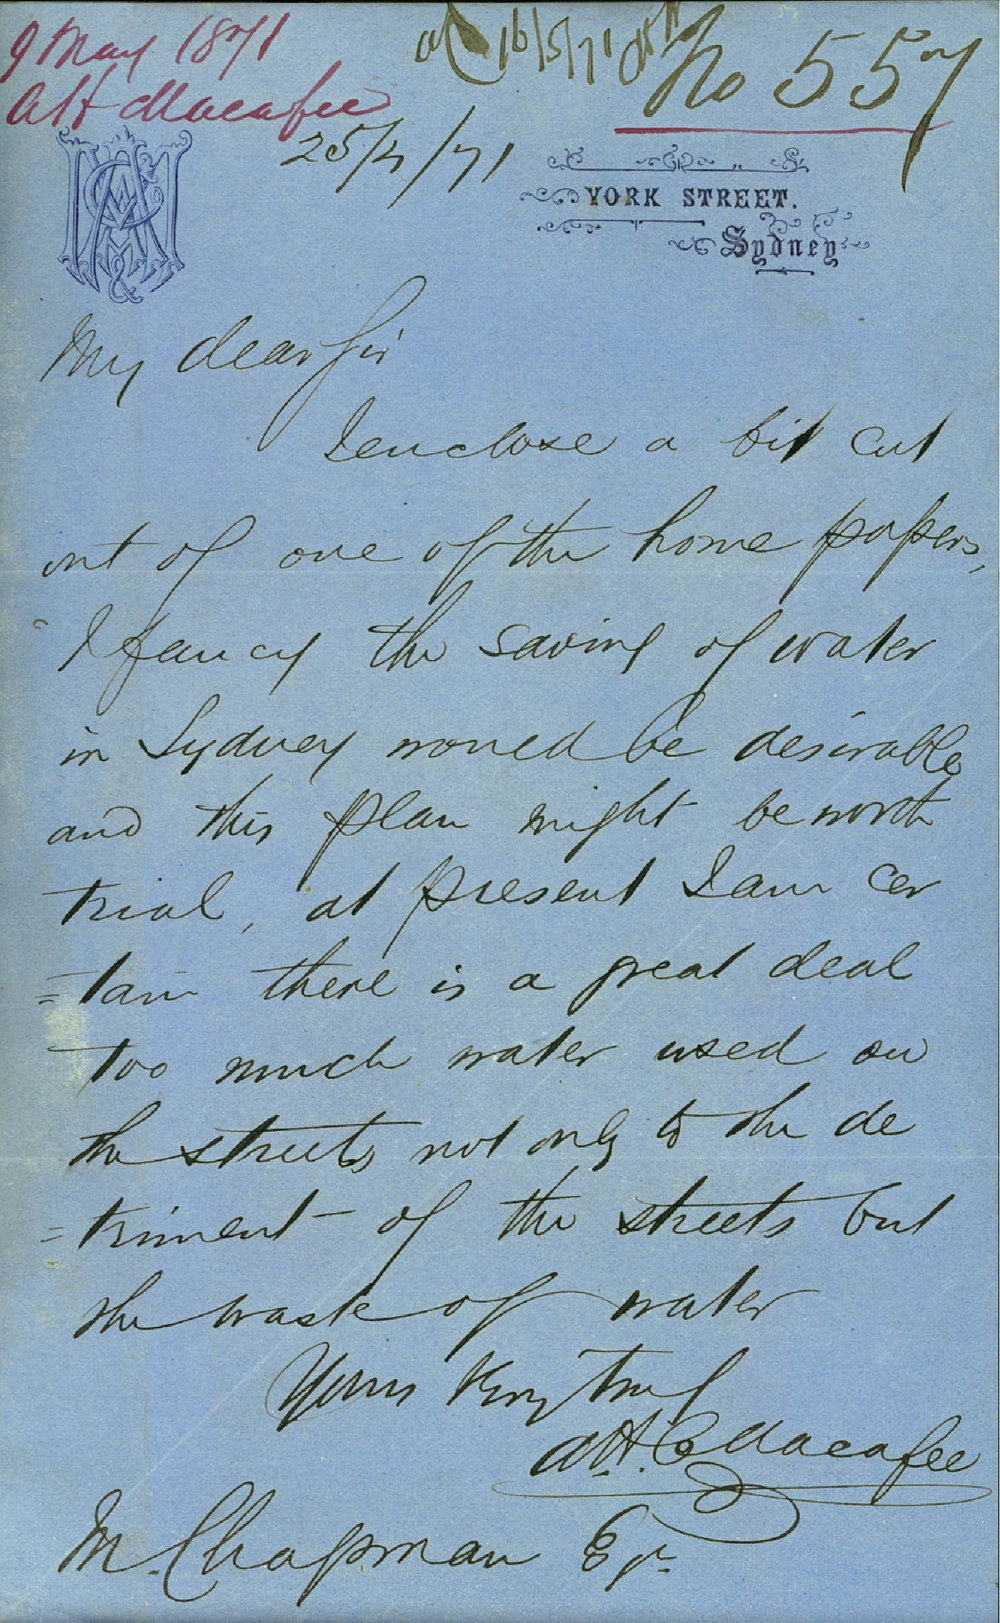 9 May 1871
AH Macafee
16/5/71
No 557
25/4/71
YORK STREET.
Sydney
My dear Sir
I enclose a bit cut
out of one of the home papers,
I fancy the saving of water
in Sydney would be desirable
and this plan might be worth
trial, at present I am cer
=tain there is a great deal
too much water used on
the streets not only to the de
=triment - of the streets but
the waste of water
Yours very truly
A.H.C Macafee
M. Chapman Esqr.